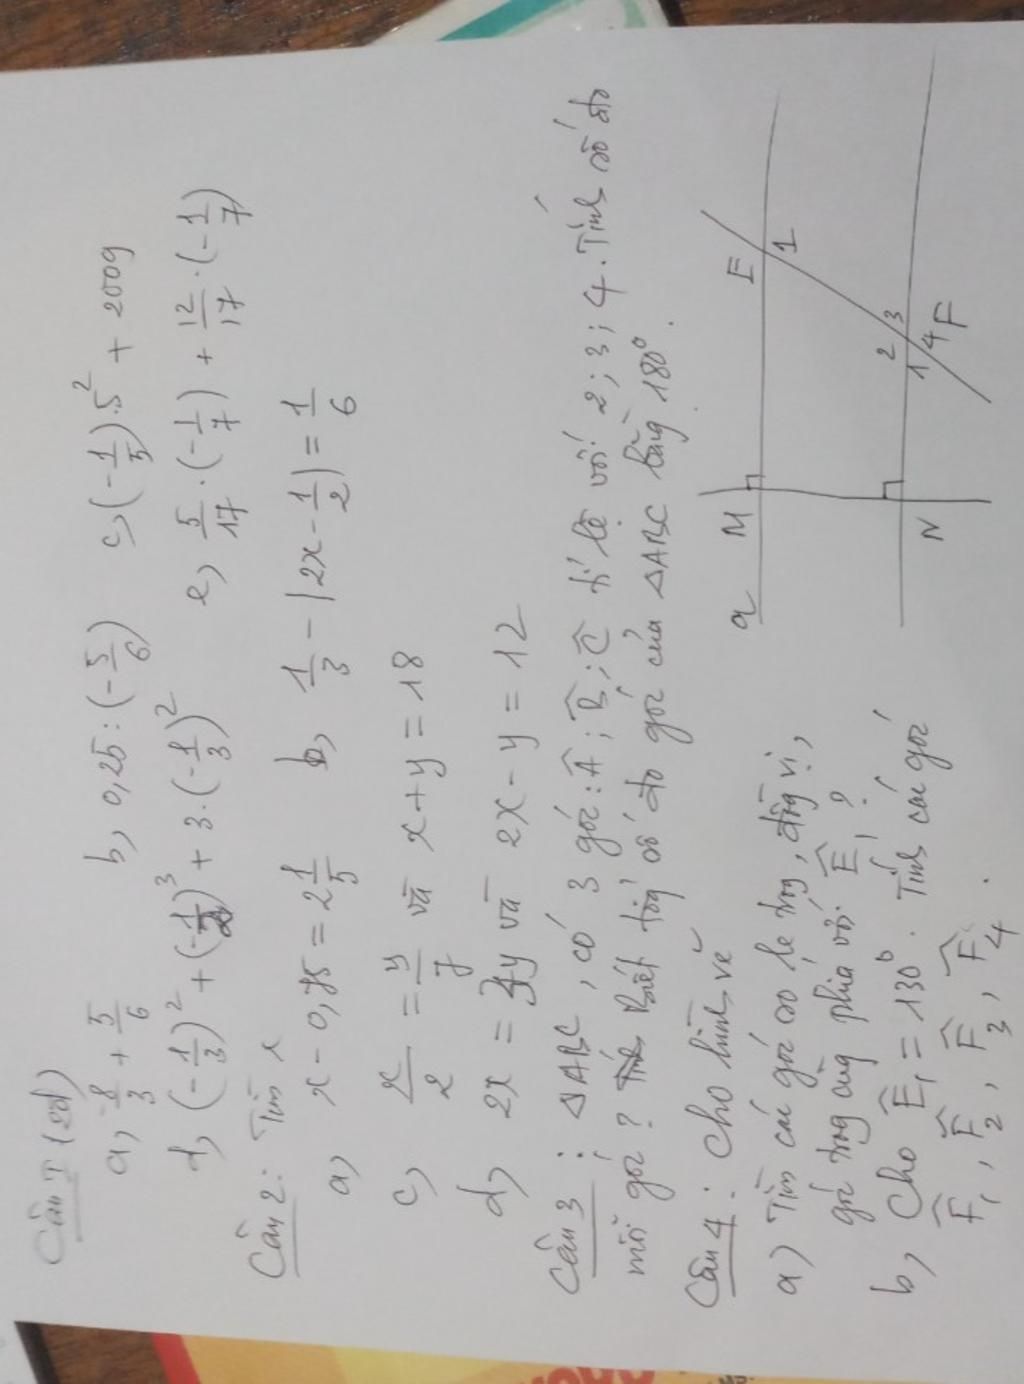 Câu I (2đ)
a, 8/3 + 5/6 b, 0,25 : (-5/6) c, (-1/5).5² + 2009
d, (-1/3)² + (-1/3)³ + 3.(-1/3)² e, 5/17.(-1/7) + 12/17.(-1/7)
Câu 2: Tìm x
a) x - 0,75 = 2 1/5 b, 1/3 - |2x - 1/2| = 1/6
c) x/2 = y/7 và x + y = 18
d, 2x = 3y và 2x - y = 12
Câu 3: ΔABC, có 3 góc: Â; B̂; Ĉ tỉ lệ với 2; 3; 4. Tính số đo
mỗi góc? Biết tổng số đo góc của ΔABC bằng 180°.
Câu 4: Cho hình vẽ
a) Tìm các góc so le trong, đồng vị,
góc trong cùng phía với Ê₁?
b, Cho Ê₁ = 130°. Tính các góc
F̂₁, F̂₂, F̂₃, F̂₄.
a M E
1
2 3
1 4
N F